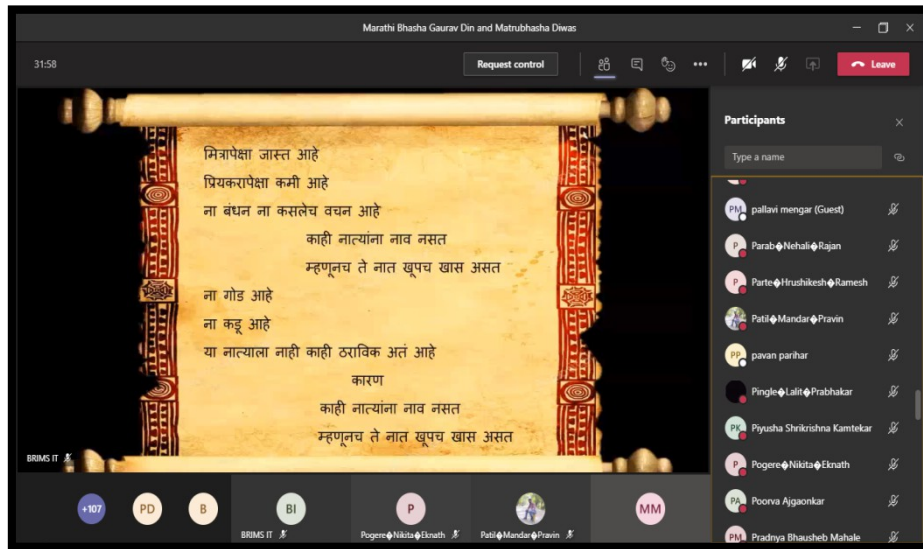 Marathi Bhasha Gaurav Din and Matrubhasha Diwas
31:58
Request control
Leave
मित्रापेक्षा जास्त आहे
प्रियकरापेक्षा कमी आहे
ना बंधन ना कसलेच वचन आहे
काही नात्यांना नाव नसत
म्हणूनच ते नात खूपच खास असत
ना गोड आहे
ना कडू आहे
या नात्याला नाही काही ठराविक अतं आहे
कारण
काही नात्यांना नाव नसत
म्हणूनच ते नात खूपच खास असत
BRIMS IT
+107
PD
B
BI
BRIMS IT
P
Pogere�Nikita�Eknath
Patil�Mandar�Pravin
MM
Participants
Type a name
PM pallavi mengar (Guest)
P Parab�Nehali�Rajan
P Parte�Hrushikesh�Ramesh
Patil�Mandar�Pravin
PP pavan parihar
Pingle�Lalit�Prabhakar
PK Piyusha Shrikrishna Kamtekar
P Pogere�Nikita�Eknath
PA Poorva Ajgaonkar
PM Pradnya Bhausheb Mahale